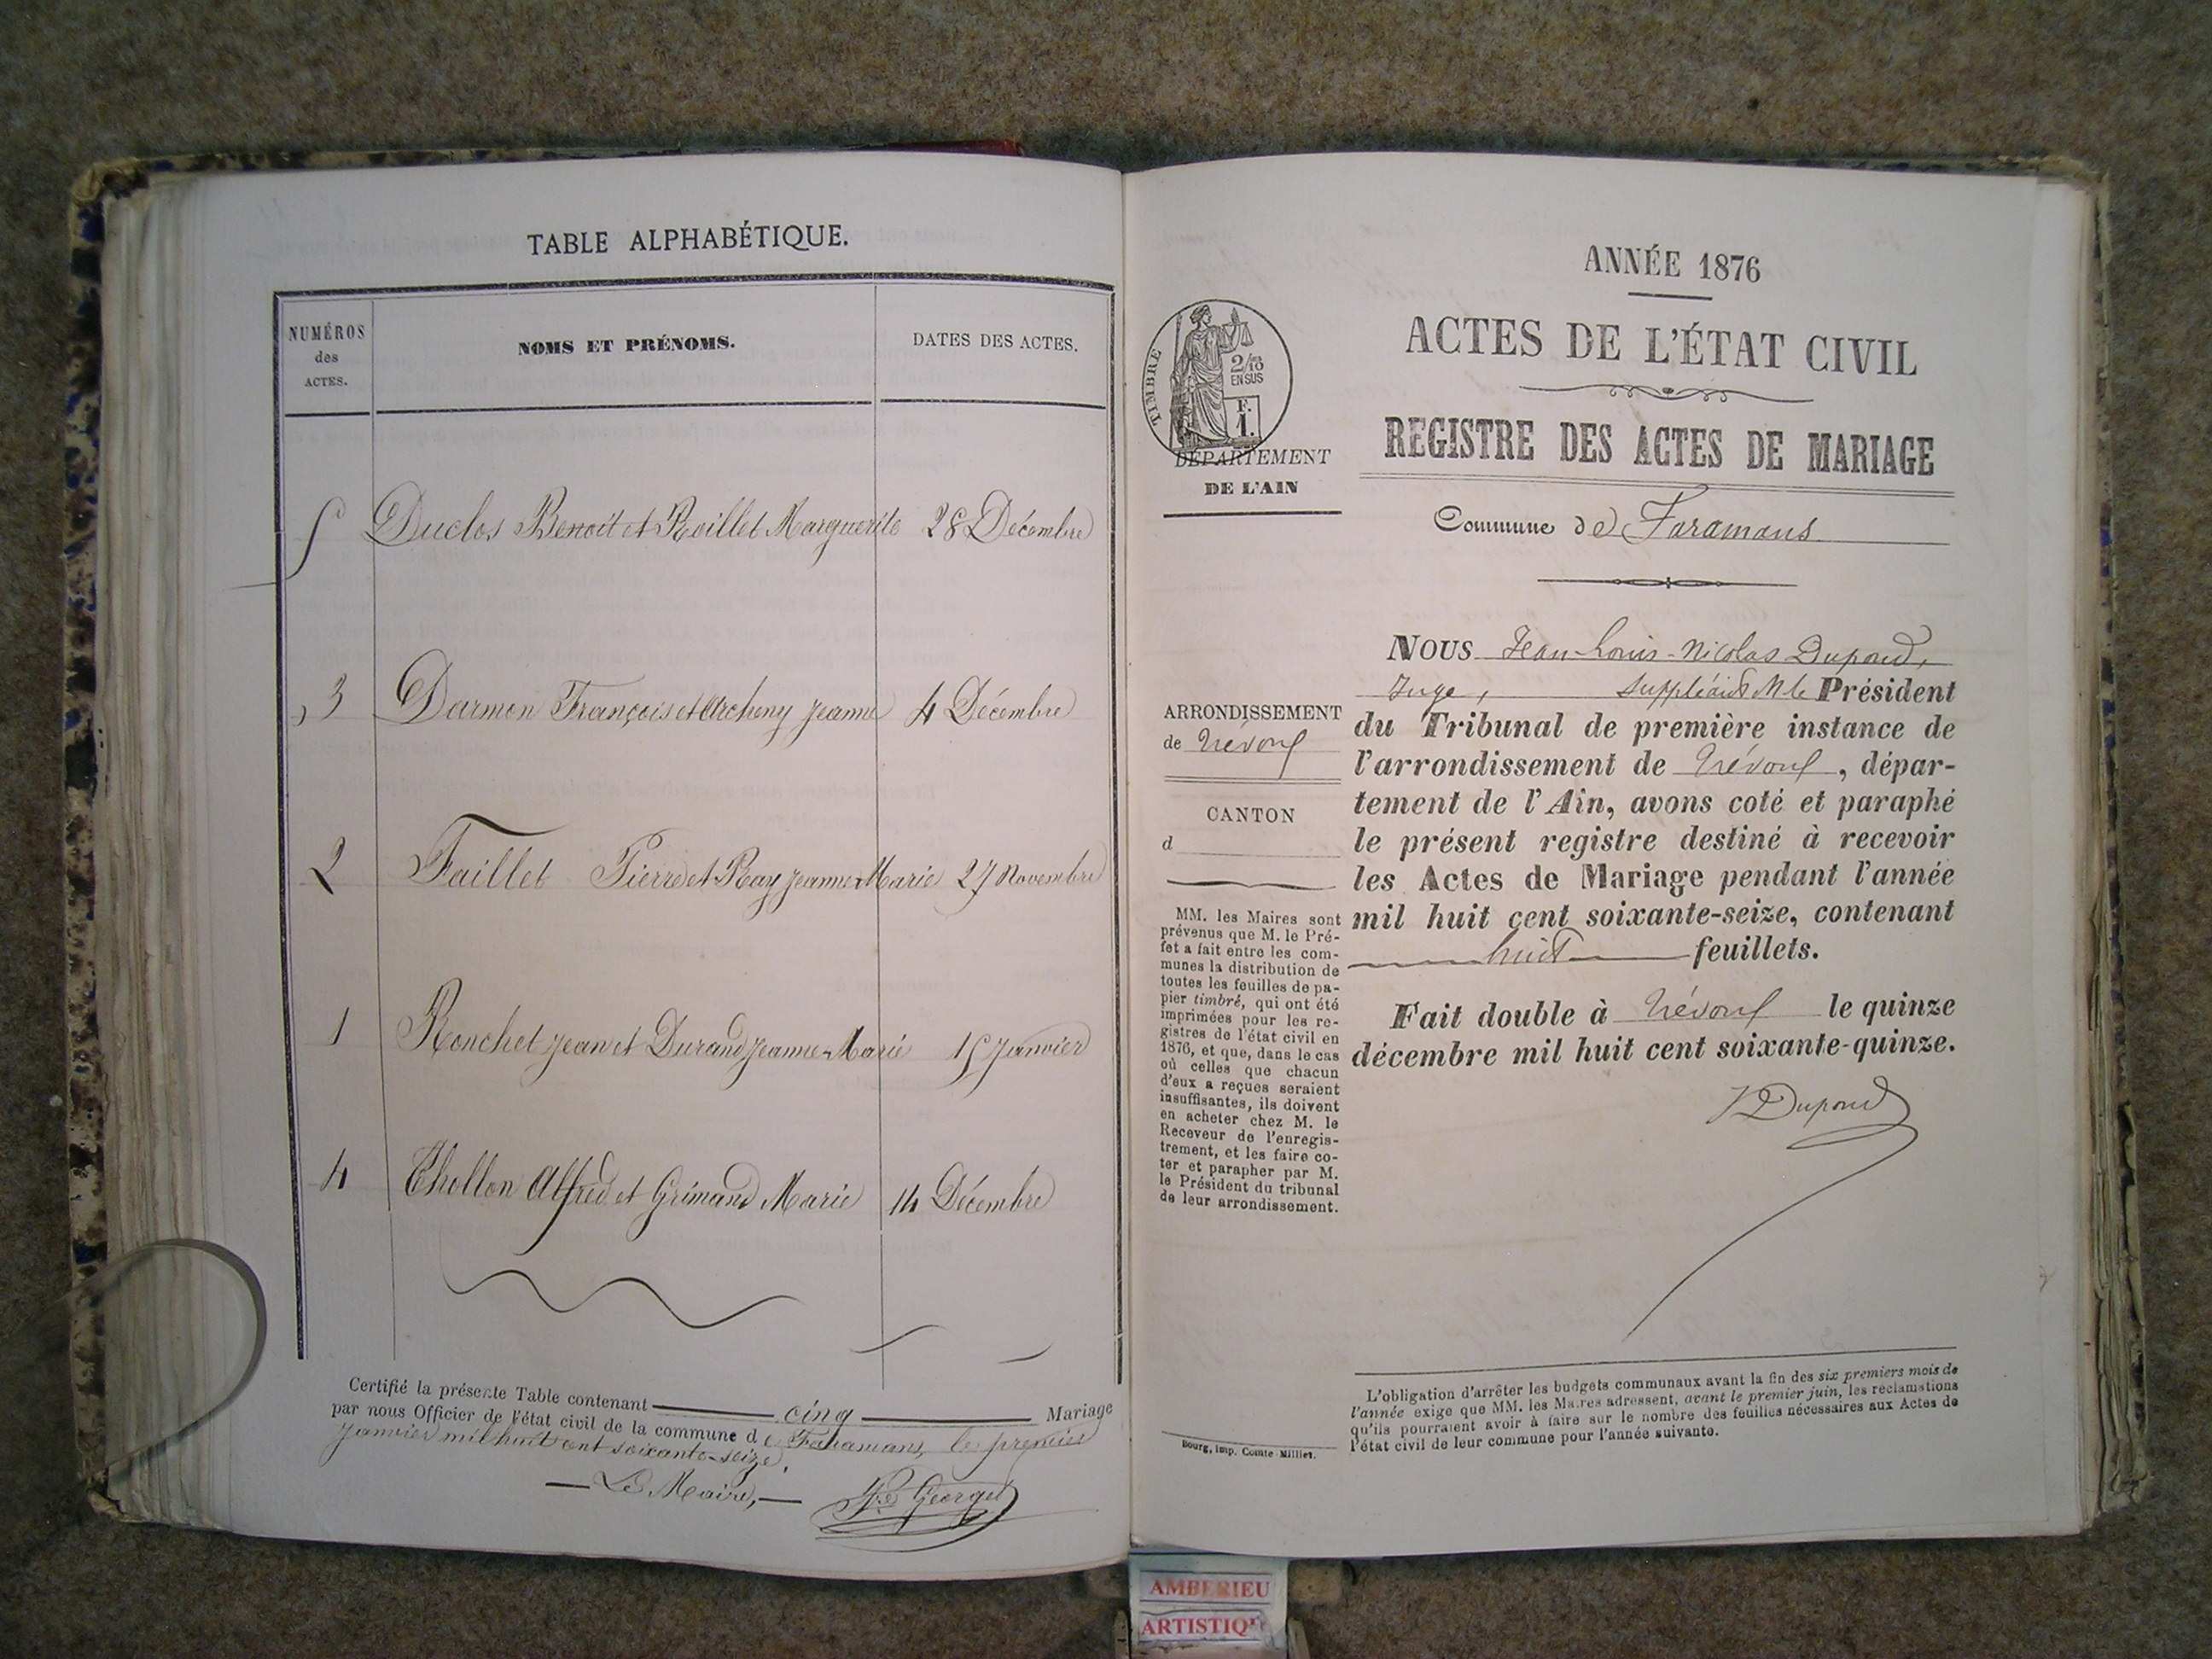 TABLE ALPHABÉTIQUE.
NUMÉROS
des
ACTES.
NOMS ET PRÉNOMS.
DATES DES ACTES.
5 Duclos Benoit et Roillet Marguerite 28 Décembre
3 Darmon François et Archeny Jeanne 4 Décembre
2 Faillet Pierre et Ray Jeanne-Marie 27 Novembre
1 Ronchet Jean et Durand Jeanne-Marie 15 Janvier
4 Thollon Alfred et Grimand Marie 14 Décembre
Certifié la présente Table contenant cinq Mariage
par nous Officier de l'état civil de la commune de Faramans, le premier
Janvier mil huit cent soixante-seize.
Le Maire,
Georges
ANNÉE 1876
ACTES DE L'ÉTAT CIVIL
REGISTRE DES ACTES DE MARIAGE
TIMBRE
2/10
EN SUS
F.
1.
DÉPARTEMENT
DE L'AIN
Commune de Faramans
ARRONDISSEMENT
de Trévoux
CANTON
d
MM. les Maires sont
prévenus que M. le Pré-
fet a fait entre les com-
munes la distribution de
toutes les feuilles de pa-
pier timbré, qui ont été
imprimées pour les re-
gistres de l'état civil en
1876, et que, dans le cas
où celles que chacun
d'eux a reçues seraient
insuffisantes, ils doivent
en acheter chez M. le
Receveur de l'enregis-
trement, et les faire co-
ter et parapher par M.
le Président du tribunal
de leur arrondissement.
NOUS Jean-Louis-Nicolas Dupond,
Juge, suppléant M. le Président
du Tribunal de première instance de
l'arrondissement de Trévoux, dépar-
tement de l'Ain, avons coté et paraphé
le présent registre destiné à recevoir
les Actes de Mariage pendant l'année
mil huit cent soixante-seize, contenant
huit feuillets.
Fait double à Trévoux le quinze
décembre mil huit cent soixante-quinze.
Dupond
L'obligation d'arrêter les budgets communaux avant la fin des six premiers mois de
l'année exige que MM. les Maires adressent, avant le premier juin, les réclamations
qu'ils pourraient avoir à faire sur le nombre des feuilles nécessaires aux Actes de
l'état civil de leur commune pour l'année suivante.
Bourg, imp. Comte-Milliet.
AMBERIEU
ARTISTIQ